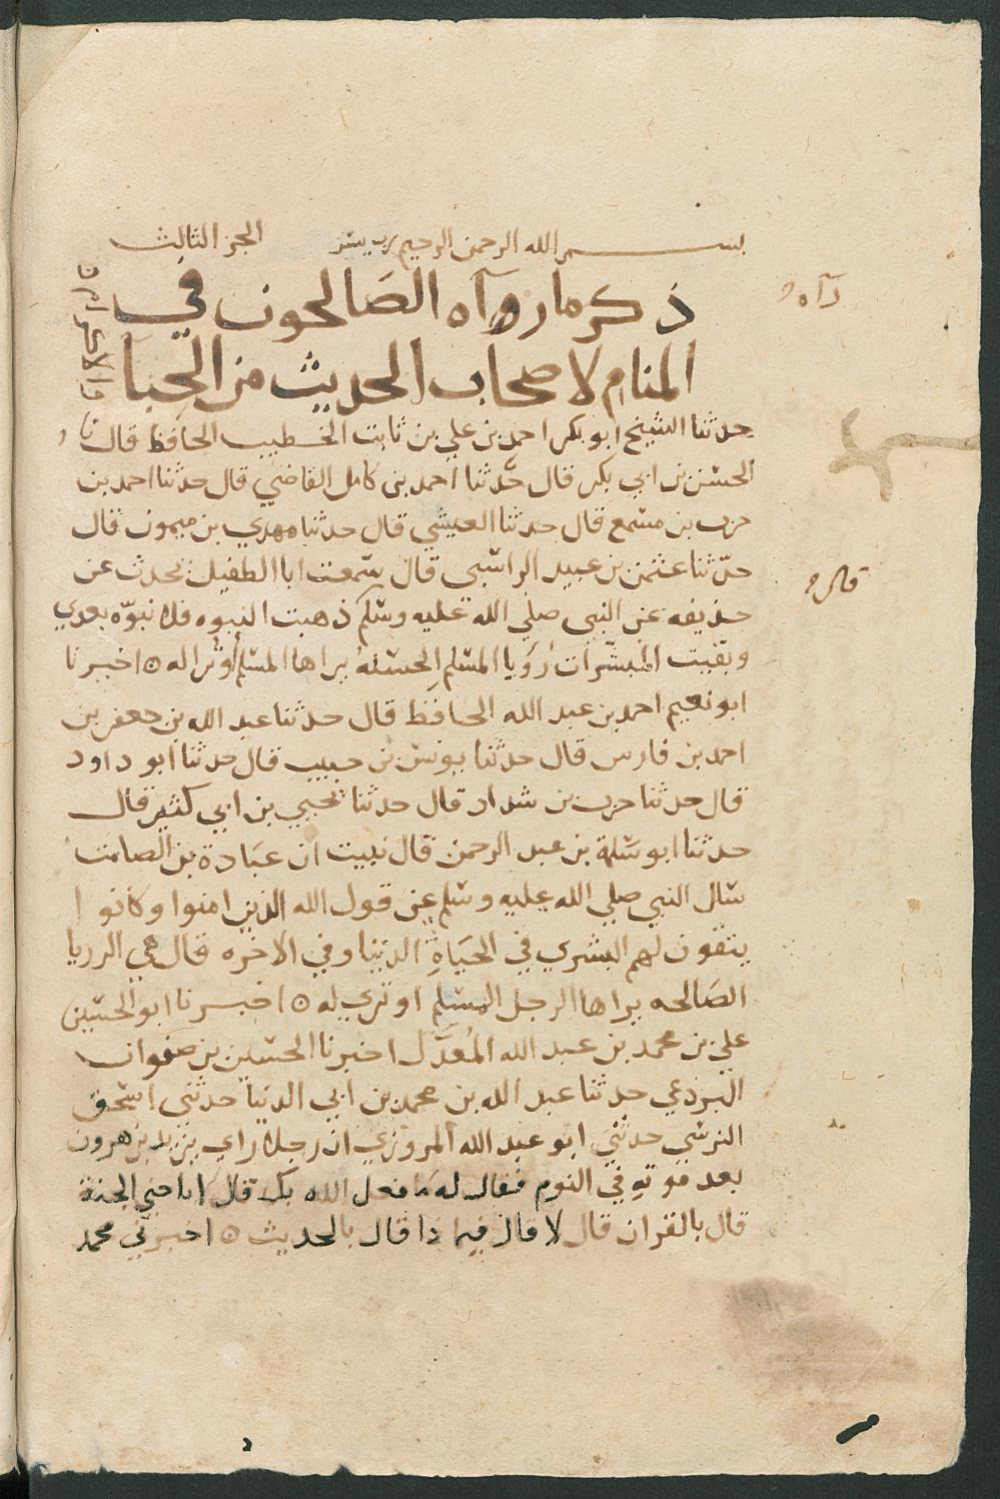 بسم الله الرحمن الرحيم رب يسر الجز الثالث
ذكر ما رواه الصَالحون في
المنام لاصحاب الحديث من الحِبا
والاكرام
رآه
حدثنا الشيخ ابو بكر احمد بن علي بن ثابت الخطيب الحافظ قال نا
الحسن بن ابي بكر قال حدثنا احمد بن كامل القاضي قال حدثنا احمد بن
حرب بن مسمع قال حدثنا العيشي قال حدثنا مهدي بن ميمون قال
حدّثنا عثمن بن عبيد الراسبي قال سمعت ابا الطفيل يحدث عن
قال
حذيفه عن النبي صلي الله عليه وسلم ذهبت النبوه فلا نبوّه بعدي
وبقيت المبشّرات رُوَيا المسلم الحسنهُ يراها المسلم أوتُرا له ه اخبرنا
ابو نعيم احمد بن عبد الله الحافظ قال حدثنا عبد الله بن جعفر بن
احمد بن فارس قال حدثنا يونس بن حبيب قال حدثنا ابو داود
قال حدثنا حرب بن شداد قال حدثنا يحيي بن ابي كثير قال
حدثنا ابو سلمة بن عبد الرحمن قال نبيت ان عبَادة بن الصامت
سال النبي صلي الله عليه وسلم عن قول الله الذين امنوا وكانوا
يتقون لهم البشري في الحيَاةِ الدنيا وفي الاخره قال هي الرويا
الصَالحه يراها الرجل المسلم او تري له ه اخبرنا ابو الحسين
علي بن محمد بن عبد الله المُعَدَّل اخبرنا الحسين بن صفوان
البردعي حدثنا عبد الله بن محمد بن ابي الدنيا حدثني اسحق
النرسي حدثني ابو عبد الله المروزي ان رجلا راي يزيد بن هرون
بعد موتهِ في النوم فقال له ما فعل الله بك قال اباحني الجنة
قال بالقران قال لا قال فيما ذا قال بالحديث ه اخبرني محمد